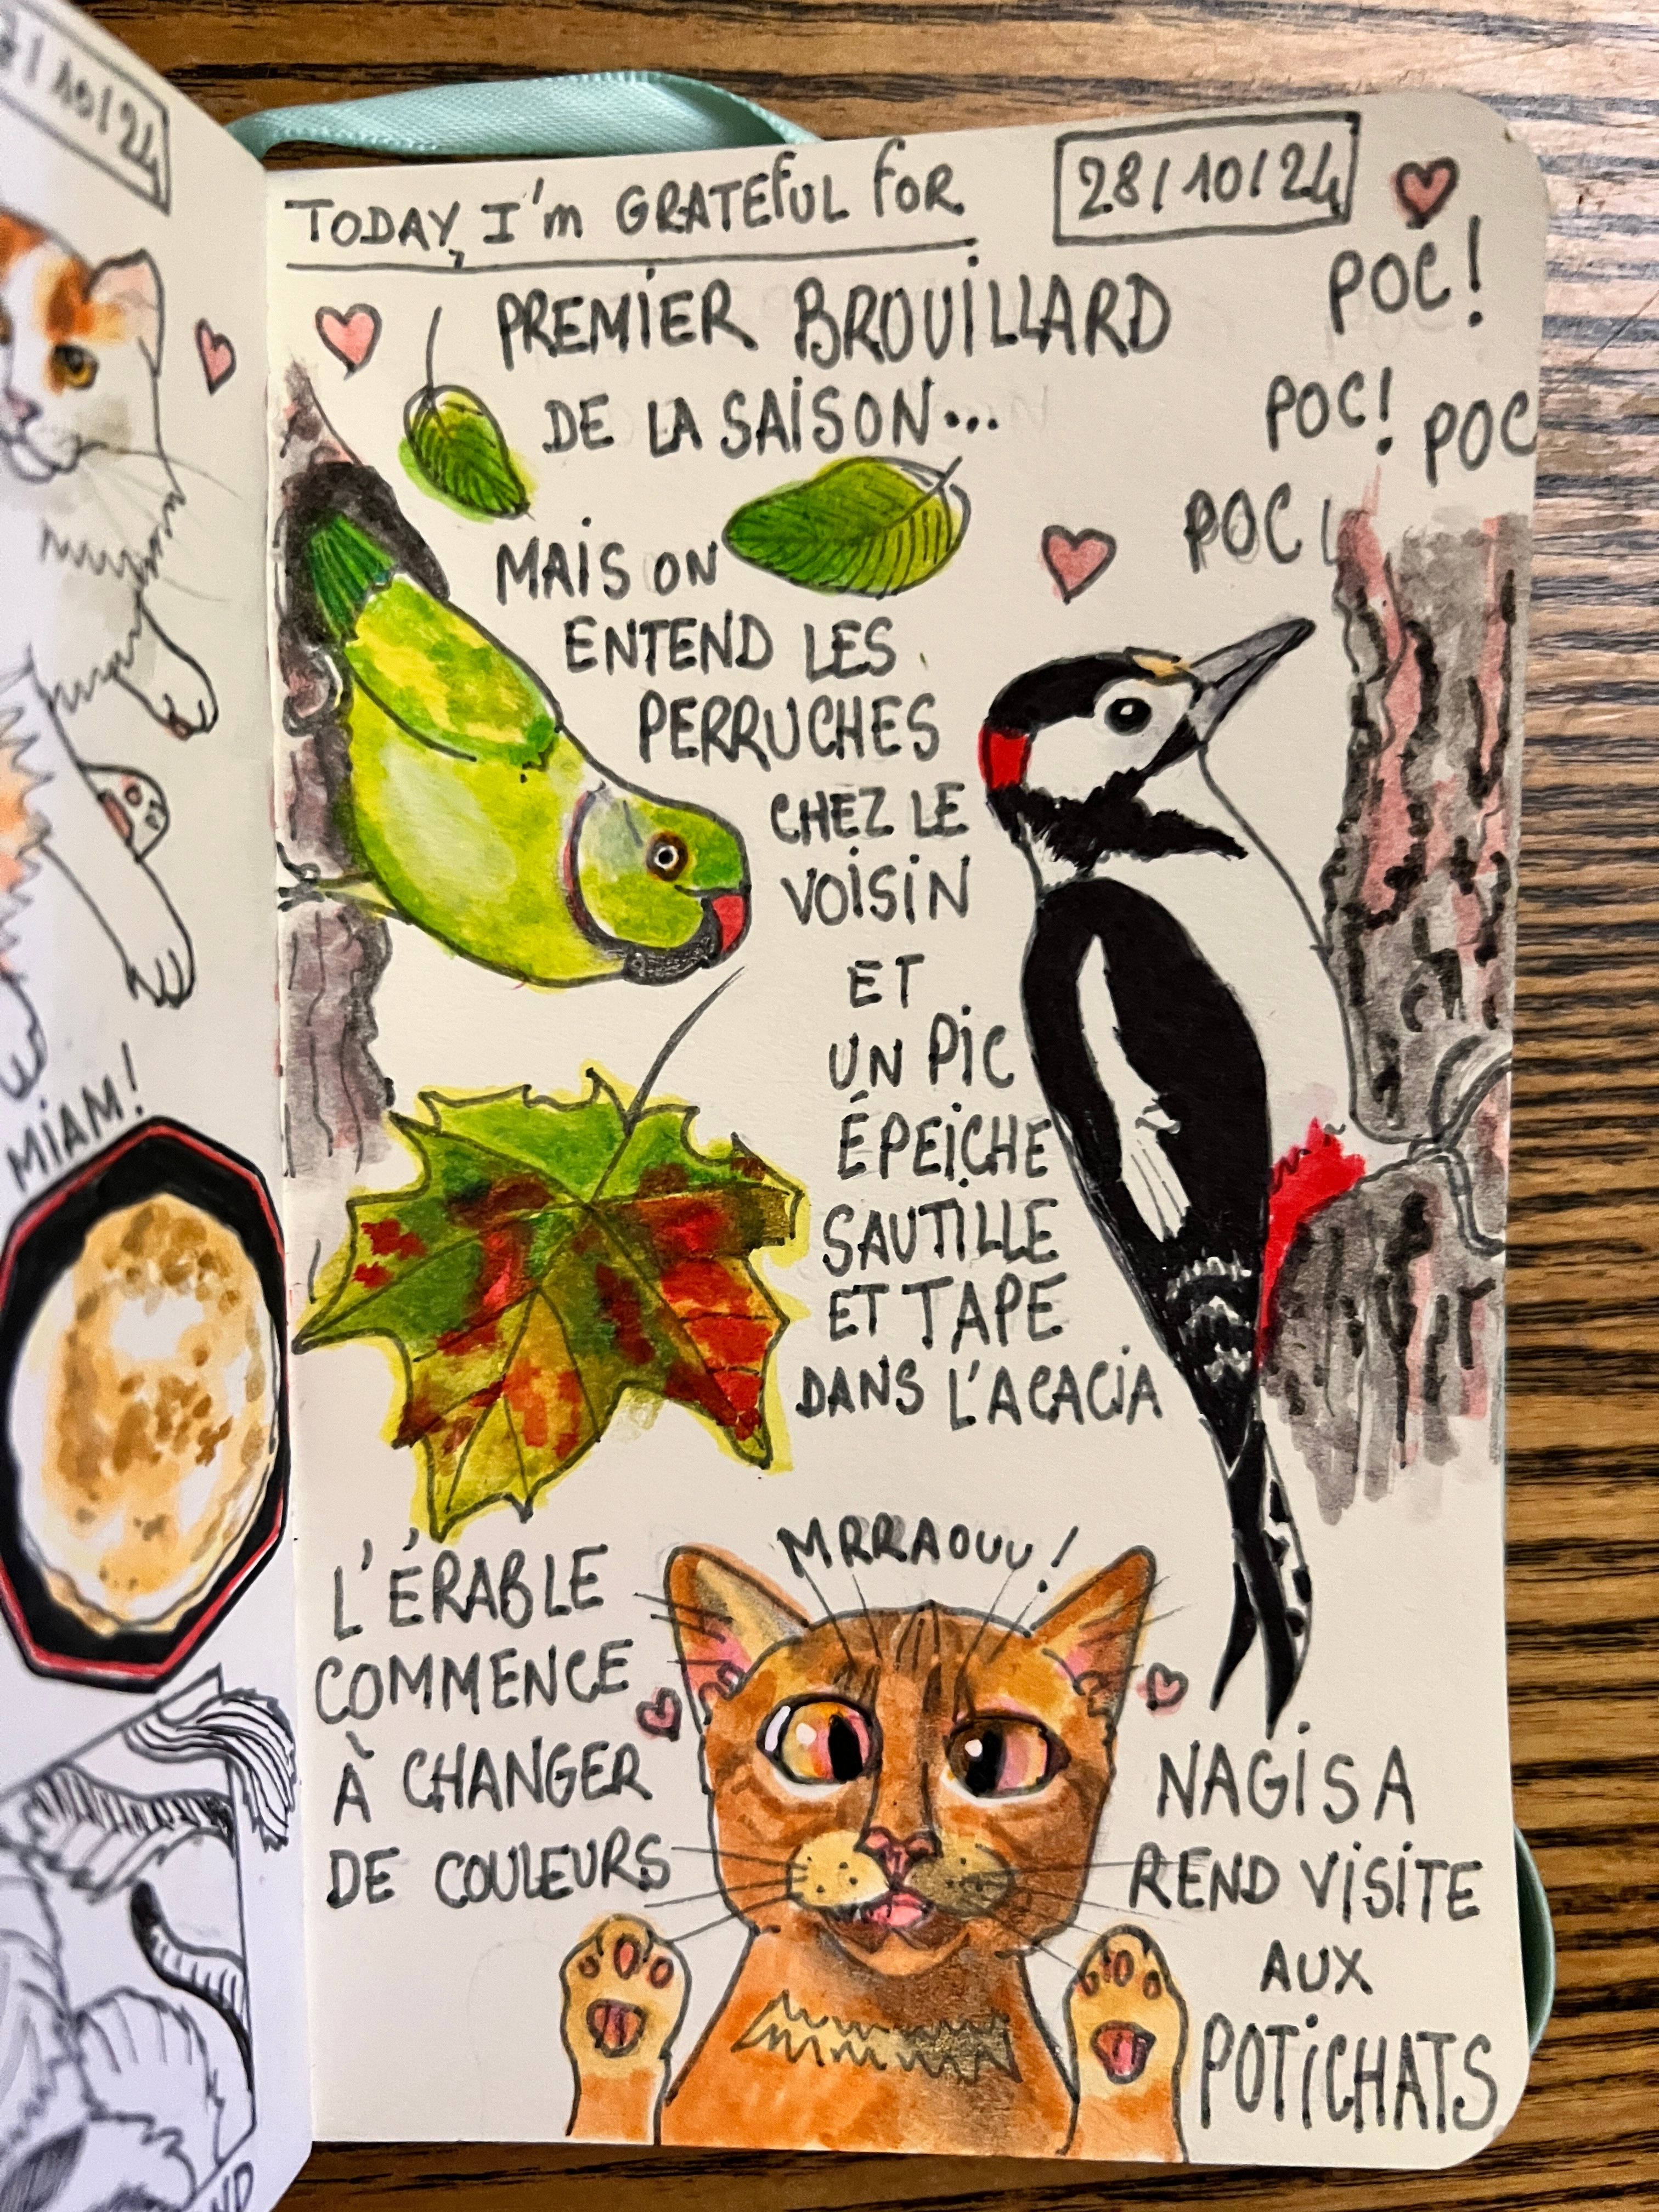 /10/24
MIAM!
TODAY, I'm GRATEFUL FOR
28/10/24
PREMIER BROUILLARD
DE LA SAISON...
POC!
POC! POC
POC
MAIS ON
ENTEND LES
PERRUCHES
CHEZ LE
VOISIN
ET
UN PIC
ÉPEICHE
SAUTILLE
ET TAPE
DANS L'ACACIA
L'ÉRABLE
COMMENCE
À CHANGER
DE COULEURS
MRRAOUU!
NAGISA
REND VISITE
AUX
POTICHATS